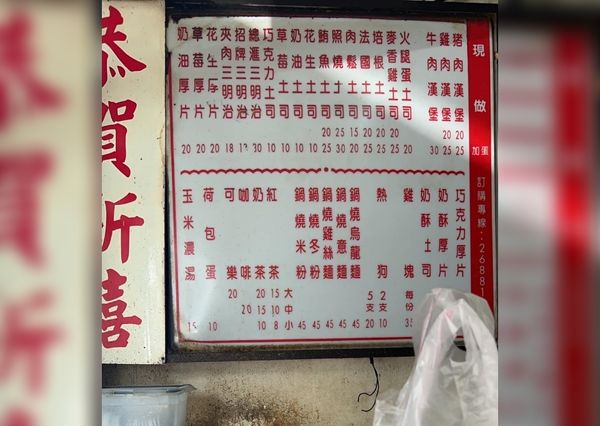 恭賀新禧
現做
加蛋
訂購專線:26881
豬肉漢堡 20 25
雞肉漢堡 20 25
牛肉漢堡 30
火腿蛋土司 20
麥香雞土司 20 25
培根土司 20 25
法國土司 20 25
肉鬆土司 15 20
照燒土司 25 30
鮪魚土司 20 25
花生土司 10
奶油土司 10
草莓土司 10
巧克力土司 10
總匯三明治 30
招牌三明治
夾肉三明治 18
花生厚片 20
草莓厚片 20
奶油厚片 20
巧克力厚片
奶酥厚片
奶酥土司
雞塊 每份 35
熱狗 2支 10 5支 20
鍋燒烏龍麵 45
鍋燒意麵 45
鍋燒雞絲麵 45
鍋燒冬粉 45
鍋燒米粉 45
大中小
紅茶 15 10 8
奶茶 20 15 10
咖啡 20
可樂 20
荷包蛋 10
玉米濃湯 15